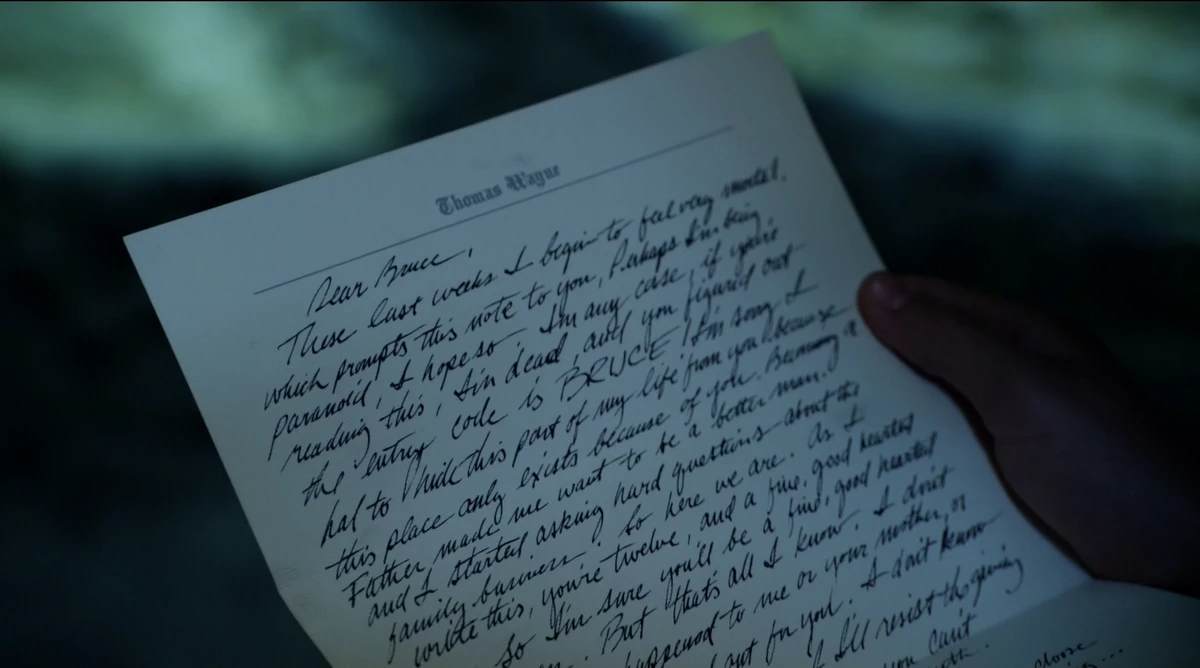 Thomas Wayne
Dear Bruce,
These last weeks I begin to feel very mortal,
which prompts this note to you, Perhaps I'm being
paranoid, I hope so. I'm any case, if you're
reading this, I'm dead, and you figured out
the entry code is BRUCE. I'm sorry I
had to hide this part of my life from you, because
this place only exists because of you. Becoming a
Father made me want to be a better man.
and I started asking hard questions about the
family business. So here we are. As I
wrote this, you're twelve, and a fine, good hearted
So I'm sure you'll be a fine, good hearted
But that's all I know. I don't
happened to me or your mother, or
out for you. I don't know
I'll resist the giving
you can't
choose